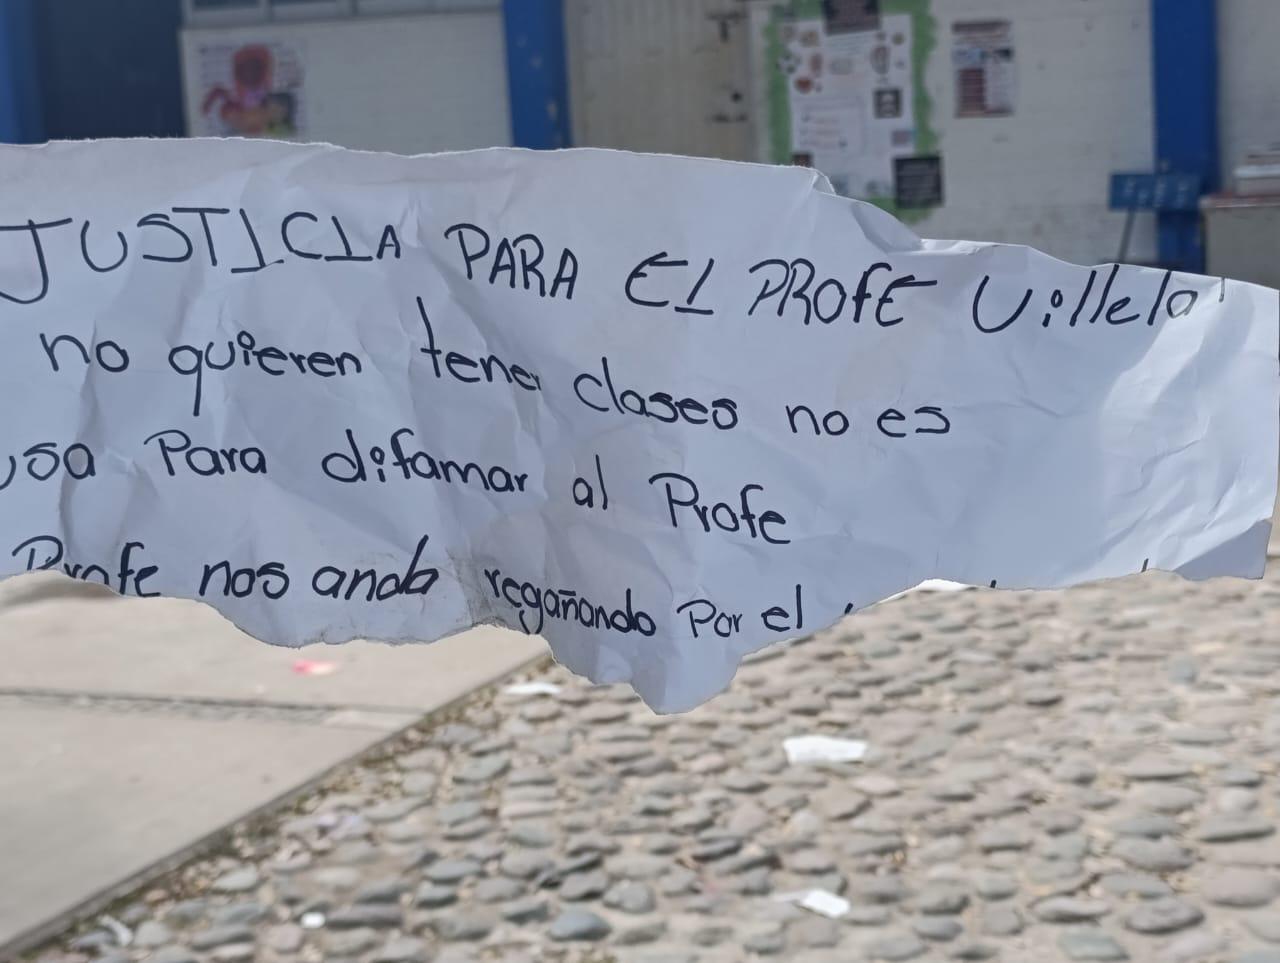 JUSTICIA PARA EL PROFE Villela
no quieren tener clases no es
usa Para difamar al Profe
Profe nos anda regañando Por el